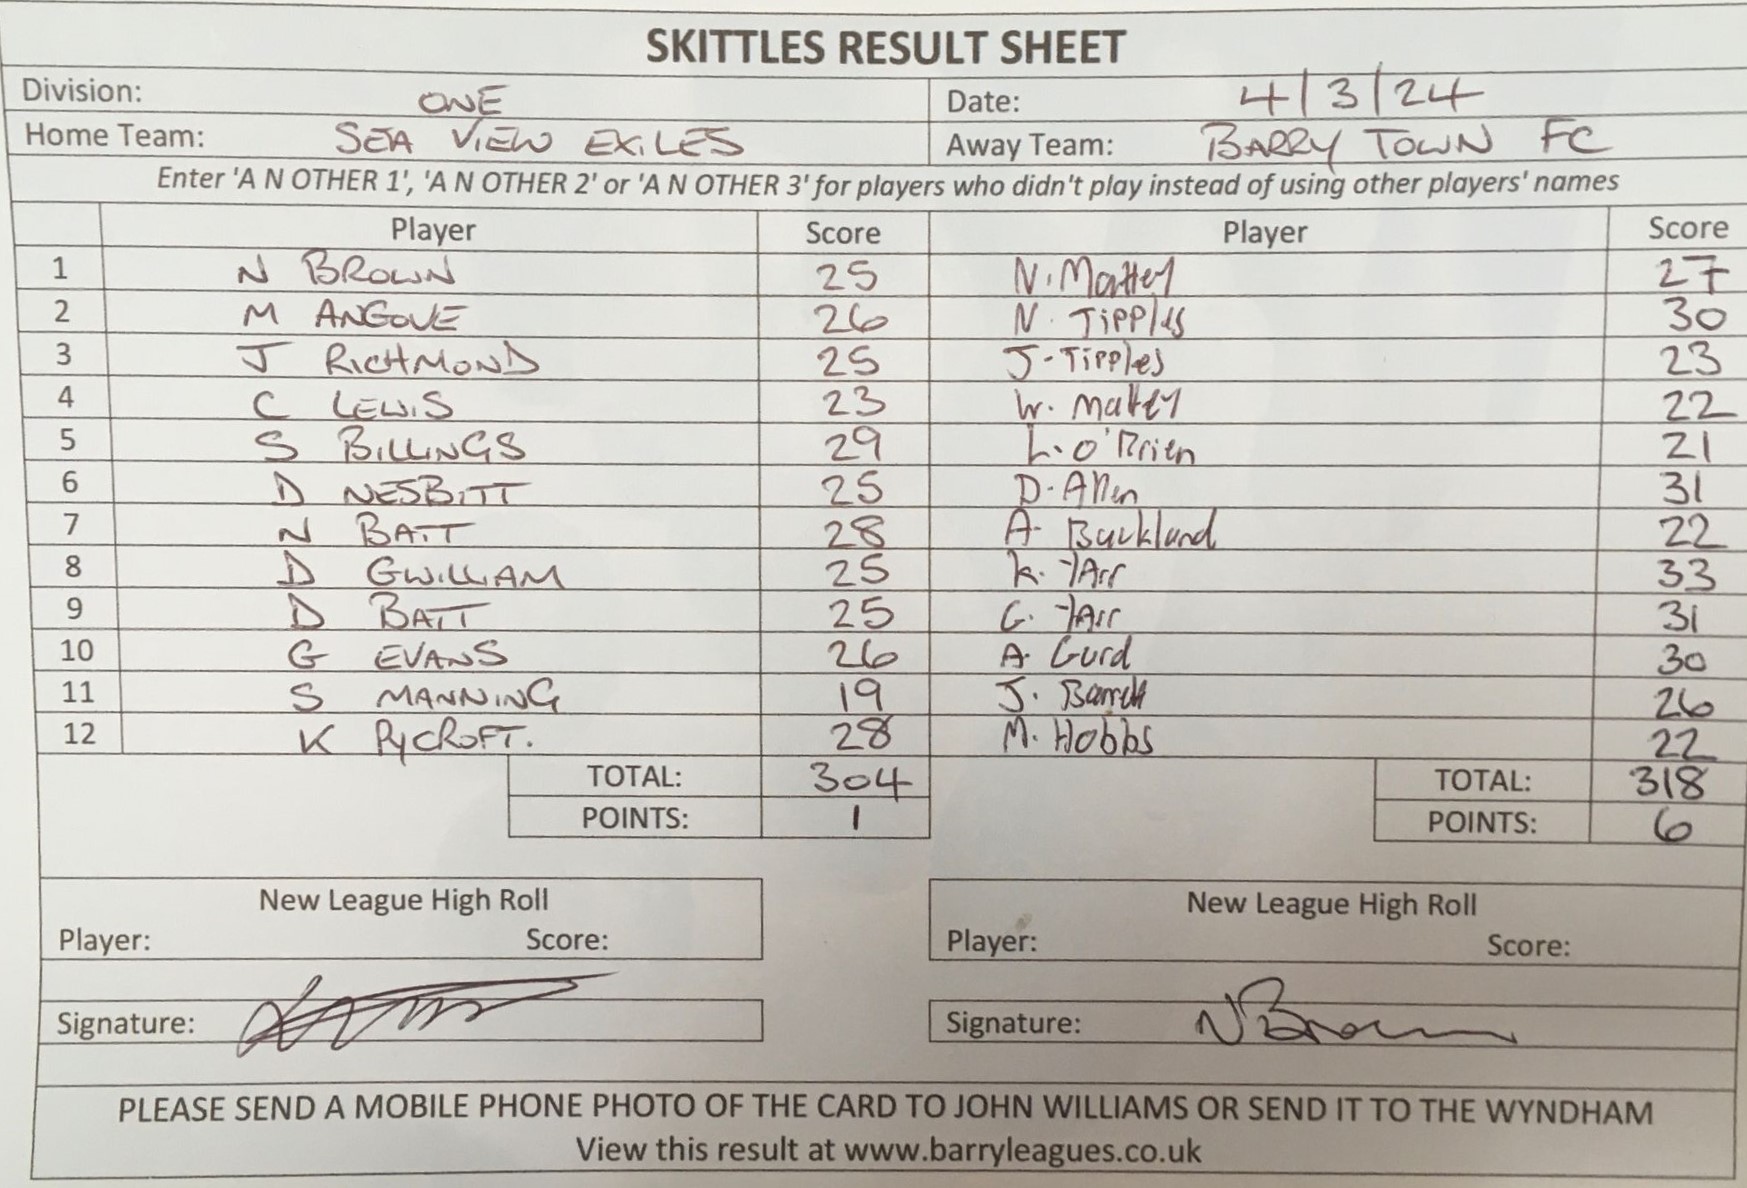 SKITTLES RESULT SHEET
Division: ONE Date: 4/3/24
Home Team: SEA VIEW EXILES Away Team: BARRY TOWN FC
Enter 'A N OTHER 1', 'A N OTHER 2' or 'A N OTHER 3' for players who didn't play instead of using other players' names
Player Score Player Score
1 N BROWN 25 N. Mattey 27
2 M ANGOVE 26 N. Tipples 30
3 J RICHMOND 25 J. Tipples 23
4 C LEWIS 23 W. Mattey 22
5 S BILLINGS 29 L. O'Brien 21
6 D NESBITT 25 D. Allen 31
7 N BATT 28 A. Buckland 22
8 D GWILLIAM 25 K. 33
9 D BATT 25 G. 31
10 G EVANS 26 A. Gurd 30
11 S MANNING 19 J. Barrett 26
12 K RYCROFT. 28 M. Hobbs 22
TOTAL: 304 TOTAL: 318
POINTS: 1 POINTS: 6
New League High Roll New League High Roll
Player: Score: Player: Score:
Signature: Signature: N Brown
PLEASE SEND A MOBILE PHONE PHOTO OF THE CARD TO JOHN WILLIAMS OR SEND IT TO THE WYNDHAM
View this result at www.barryleagues.co.uk